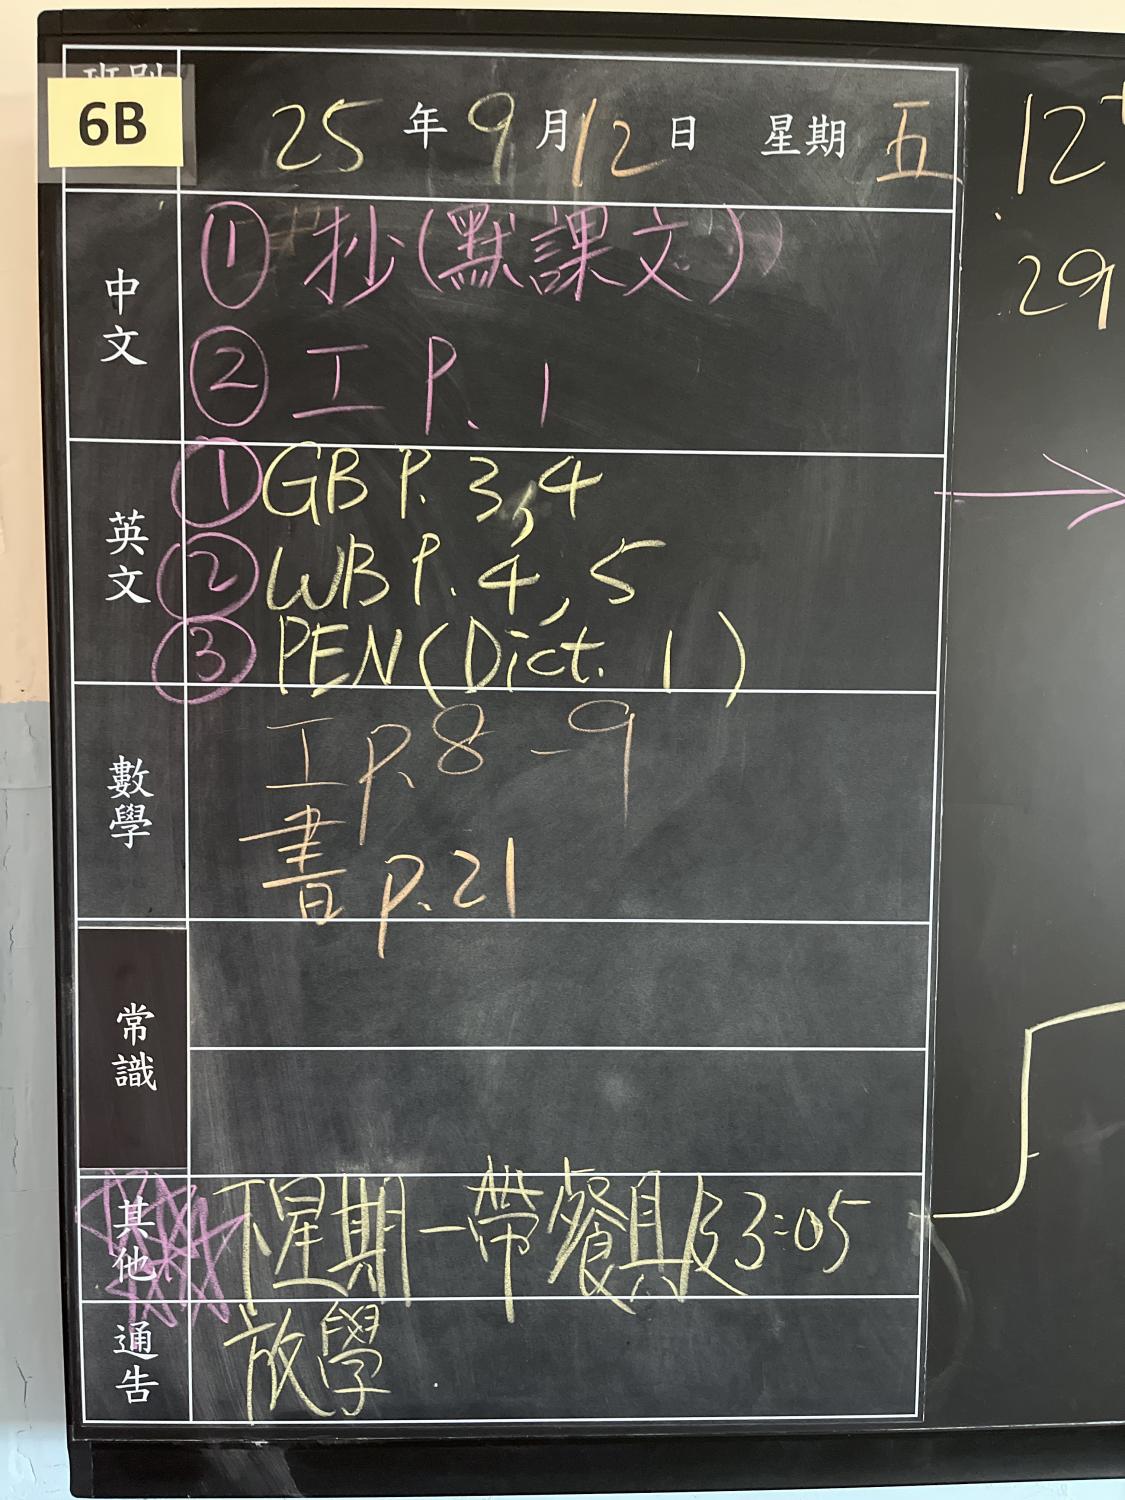 班別
6B
25年9月12日 星期五
中文
① 抄(默課文)
② 工 P. 1
英文
① GB P. 3,4
② WB P. 4, 5
③ PEN (Dict. 1)
數學
工 p. 8-9
書 p. 21
常識
其他
下星期一帶餐具及3:05
通告
放學.
12
29